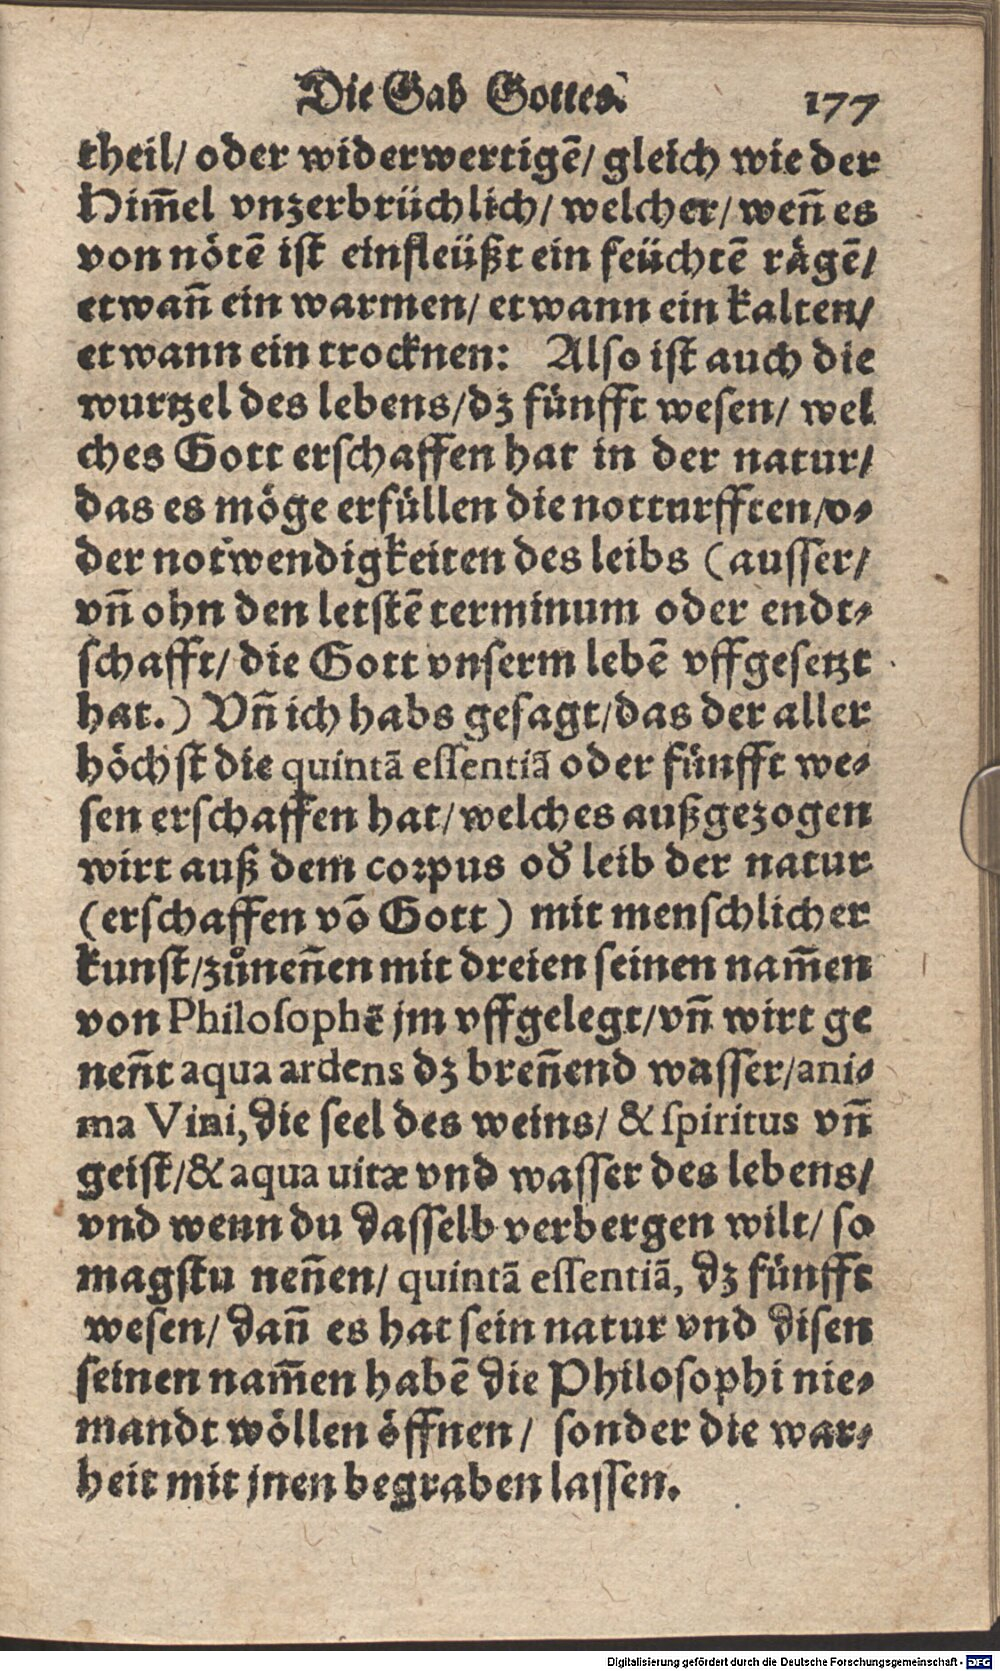 Die Gab Gottes. 177
theil/ oder widerwertigē/ gleich wie der
Him̄el vnzerbrüchlich/ welcher/ weñ es
von nötē ist einfleüßt ein feüchtē rägē/
etwañ ein warmen/ etwann ein kalten/
etwann ein trocknen: Also ist auch die
wurtzel des lebens/ dz fünfft wesen/ wel
ches Gott erschaffen hat in der natur/
das es möge erfüllen die notturfften/ o⸗
der notwendigkeiten des leibs (ausser/
vñ ohn den letstē terminum oder endt⸗
schafft/ die Gott vnserm lebē vffgesetzt
hat.) Vñ ich habs gesagt/ das der aller
höchst die quintā essentiā oder fünfft we⸗
sen erschaffen hat/ welches außgezogen
wirt auß dem corpus od̕ leib der natur
(erschaffen vō Gott) mit menschlicher
kunst/ zůneñen mit dreien seinen nam̄en
von Philosophē jm vffgelegt/ vñ wirt ge
neñt aqua ardens dz breñend wasser/ ani⸗
ma Vini, die seel des weins/ & spiritus vñ
geist/ & aqua uitæ vnd wasser des lebens/
vnd wenn du dasselb verbergen wilt/ so
magstu neñen/ quintā essentiā, dz fünfft
wesen/ dañ es hat sein natur vnd disen
seinen nam̄en habē die Philosophi nie⸗
mandt wöllen öffnen/ sonder die war⸗
heit mit jnen begraben lassen.
Digitalisierung gefördert durch die Deutsche Forschungsgemeinschaft - DFG